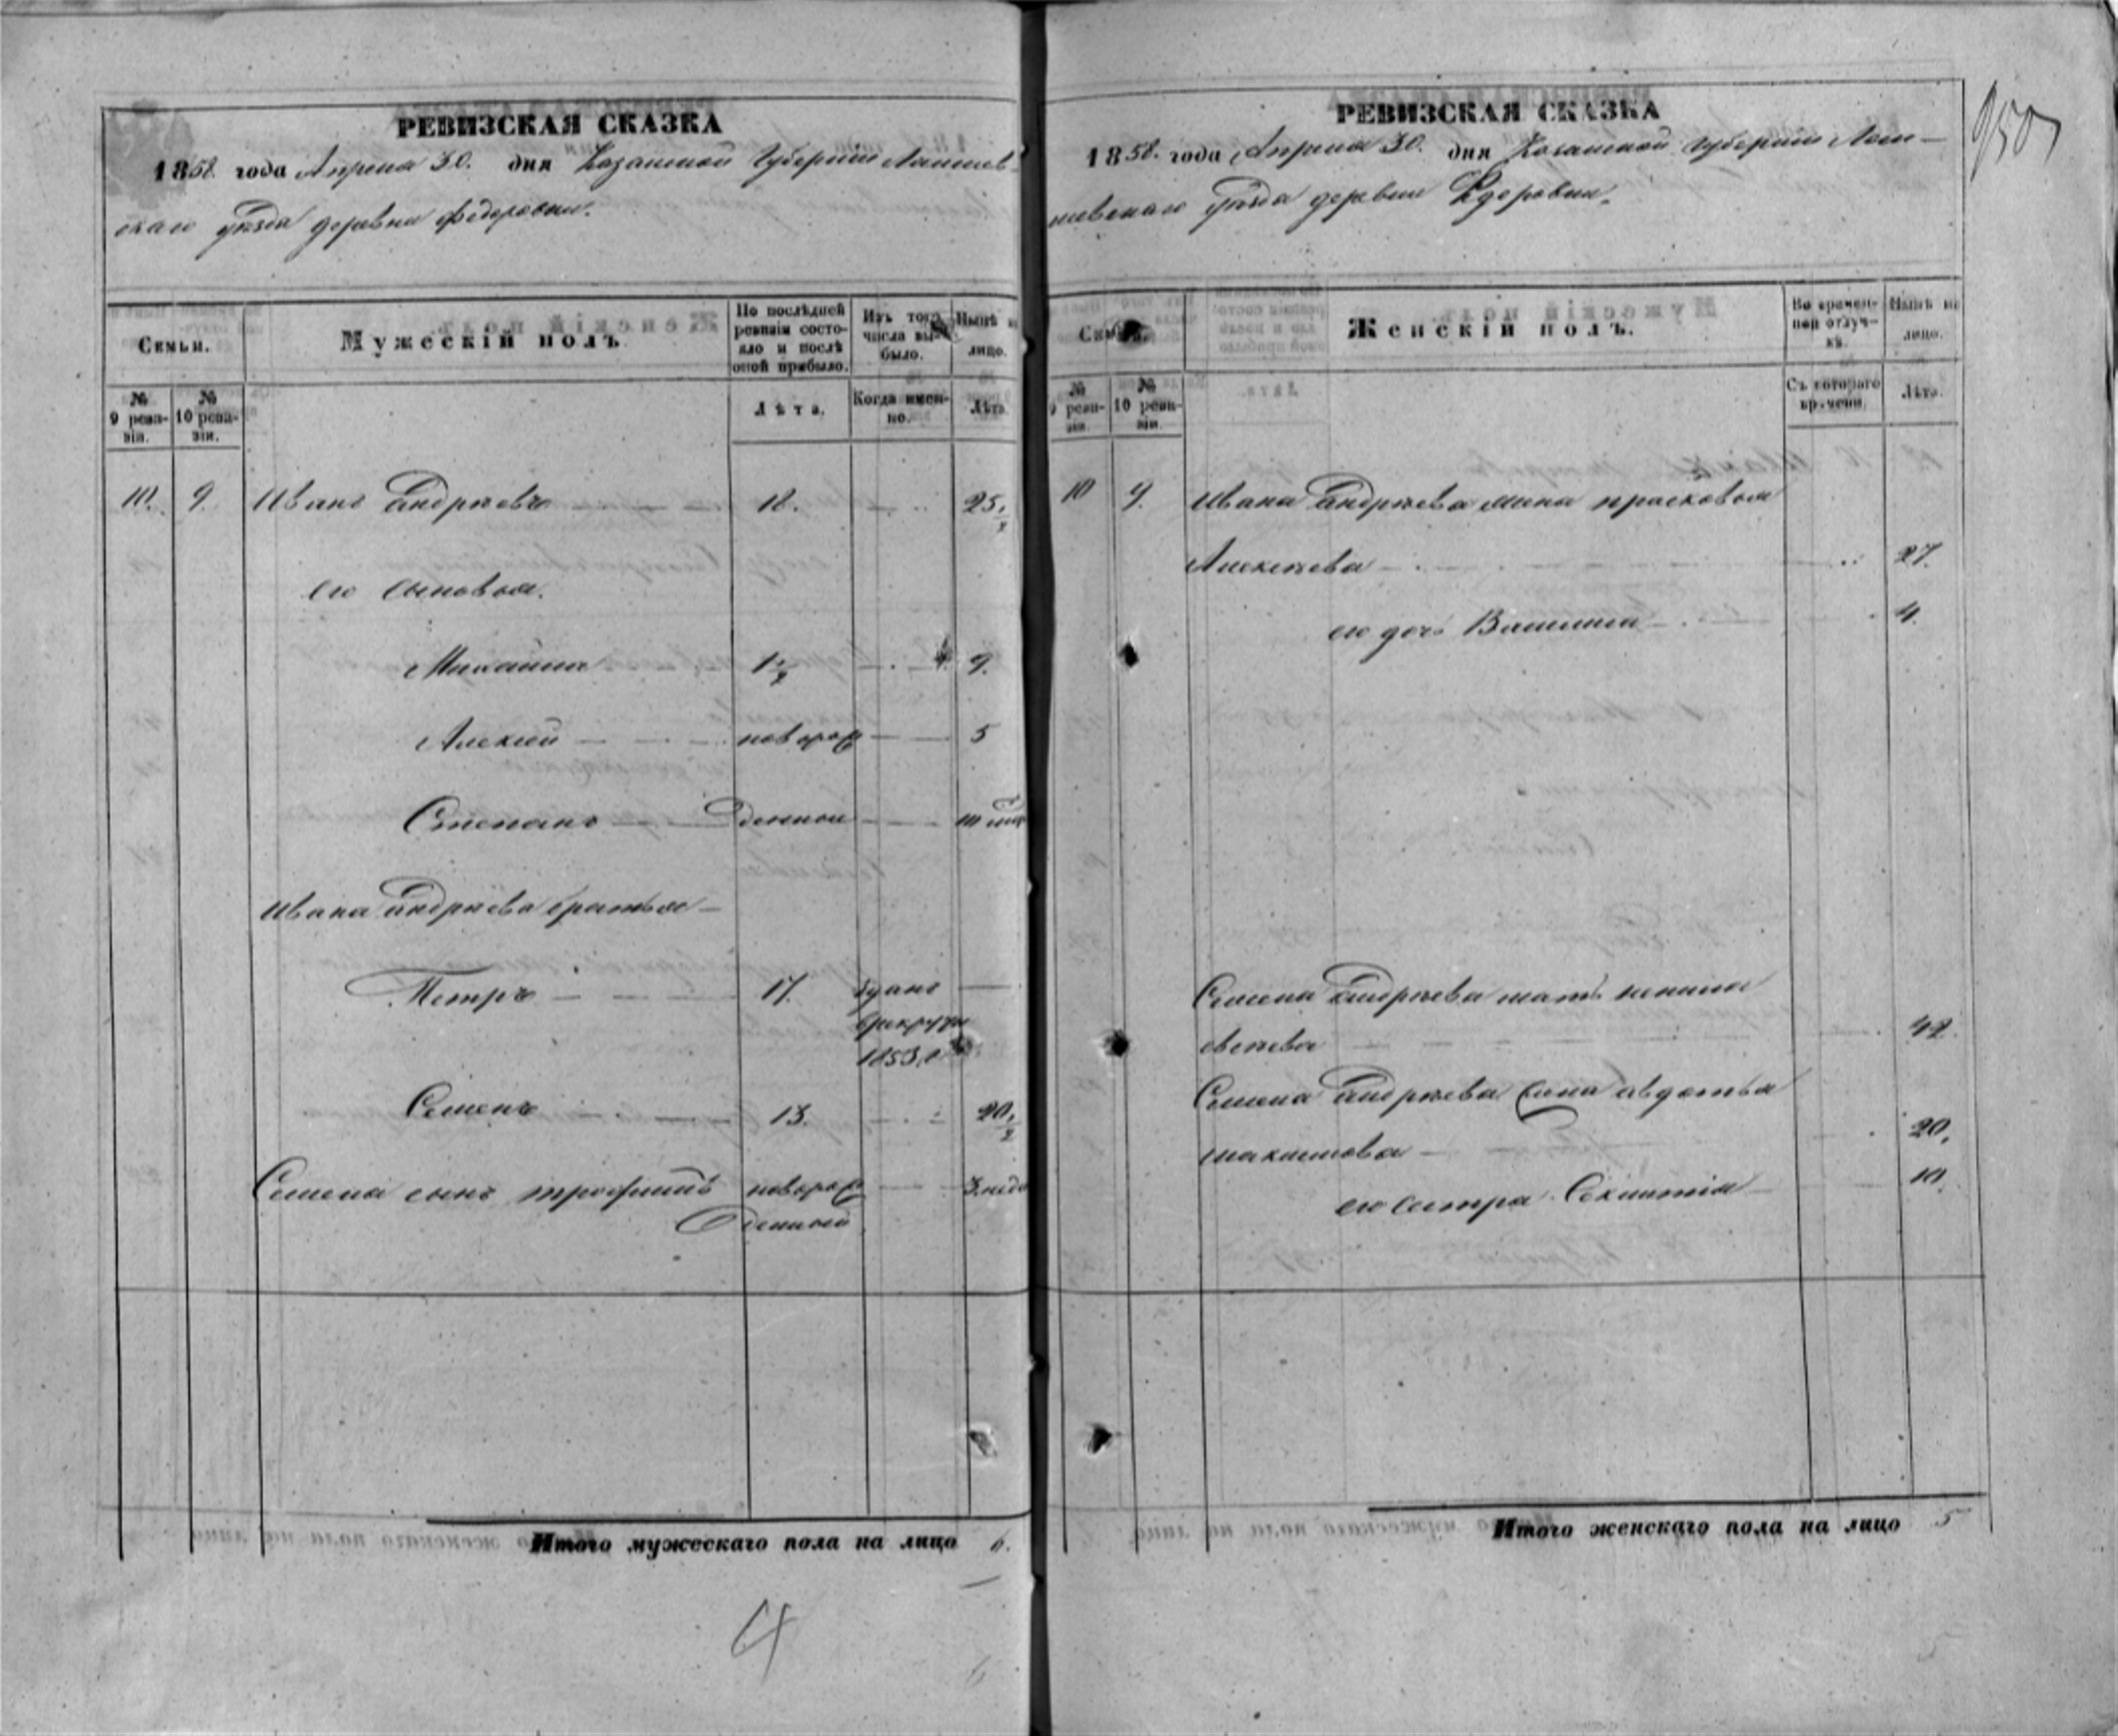 РЕВИЗСКАЯ СКАЗКА
1858 года Апреля 30. дня Казанской Губернiи Лаишев-
скаго уѣзда деревни Федоровки.
Семьи.
Мужескiй полъ
По послѣдней ревизiи состояло и послѣ оной прибыло.
Изъ того числа выбыло.
Нынѣ на лицо.
№ 9 ревизiи.
№ 10 ревизiи.
Лѣта.
Когда именно.
Лѣта
10. 9. Иванъ Андрѣевъ 18. 25 1/2
его сыновья.
Михаила 1 1/2 9.
Алексей новорож 5
Степанъ денной
Ивана Андрѣева братья
Петръ 17. здано
врекруты
1853.г
Семенъ 13. 20 1/2
Семена сынъ трофимъ новорож 3 неде
денный
Итого мужескаго пола на лицо 6.
6
РЕВИЗСКАЯ СКАЗКА
1858. года Апреля 30. дня Казанской Губернiи Лаи-
шевскаго уѣзда деревни Федоровки.
950
Семьи.
Женскiй полъ.
Во временной отлучкѣ.
Нынѣ на лицо.
№ 9 ревизiи.
№ 10 ревизiи.
Съ котораго времени.
Лѣта.
10 9. Ивана Андрѣева жена прасковья
Алексѣева 27.
его дочь 4.
Семена Андрѣева мать
42.
Семена Андрѣева жена авдотья
20.
его сестра 10.
Итого женскаго пола на лицо 5